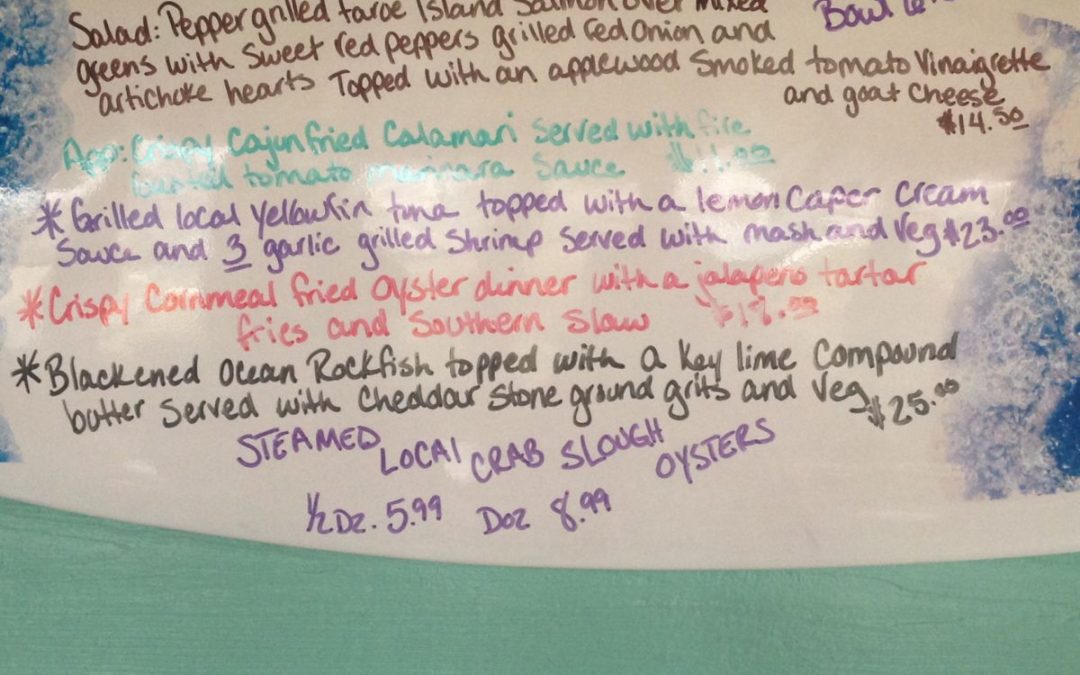 Salad: Pepper grilled faroe Island Salmon over mixed
Bowl
greens with sweet red peppers grilled red onion and
artichoke hearts Topped with an applewood Smoked tomato Vinaigrette
and goat cheese
$14.50
App: Crispy Cajun fried Calamari Served with fire
tomato marinara Sauce $11.00
*Grilled local Yellowfin tuna topped with a lemon Caper Cream
Sauce and 3 garlic grilled Shrimp Served with mash and Veg $23.00
*Crispy Cornmeal fried Oyster dinner with a jalapeno tartar
fries and Southern Slaw
*Blackened Ocean Rockfish topped with a Key lime Compound
butter Served with Cheddar Stone ground grits and Veg
$25.00
STEAMED LOCAL CRAB SLOUGH OYSTERS
1/2 Dz. 5.99 Doz 8.99